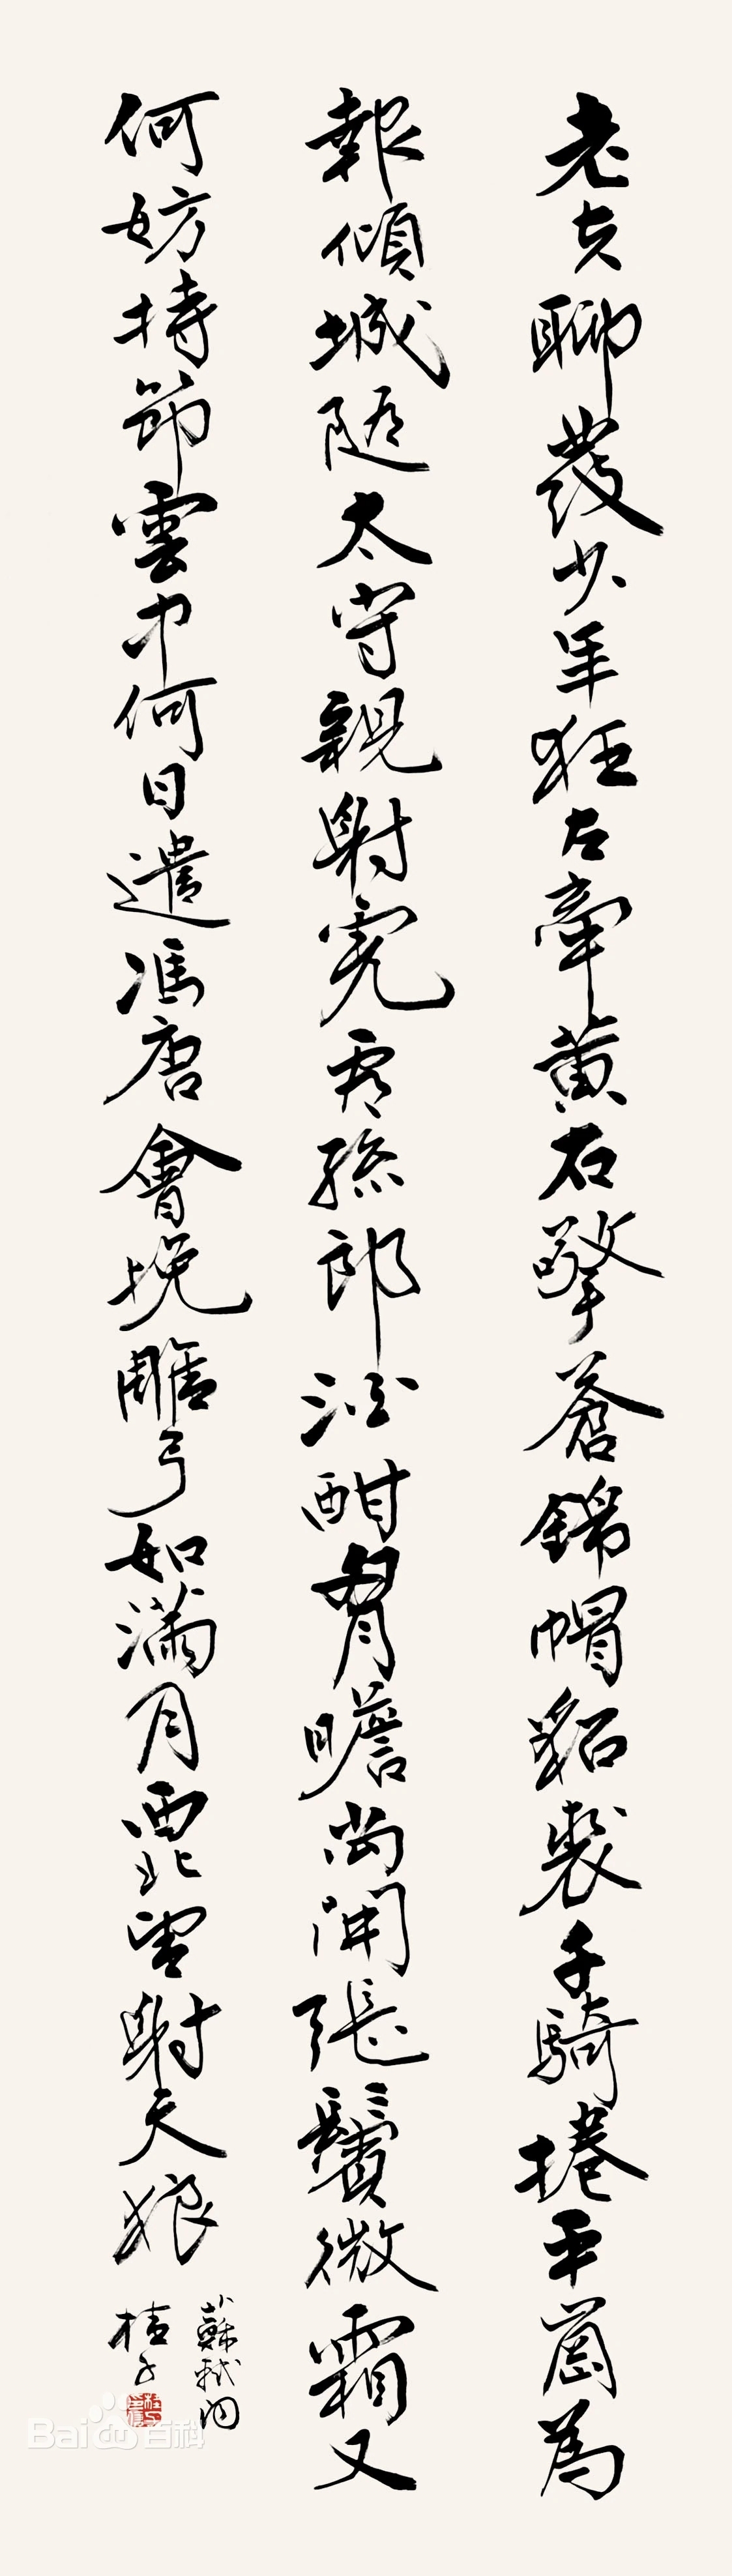 老夫聊發少年狂左牽黃右擎蒼錦帽貂裘千騎捲平崗為
報傾城隨太守親射虎看孫郎酒酣胷膽尚開張鬢微霜又
何妨持節雲中何日遣馮唐會挽雕弓如滿月西北望射天狼
蘇軾詞
桂子
Bai百科